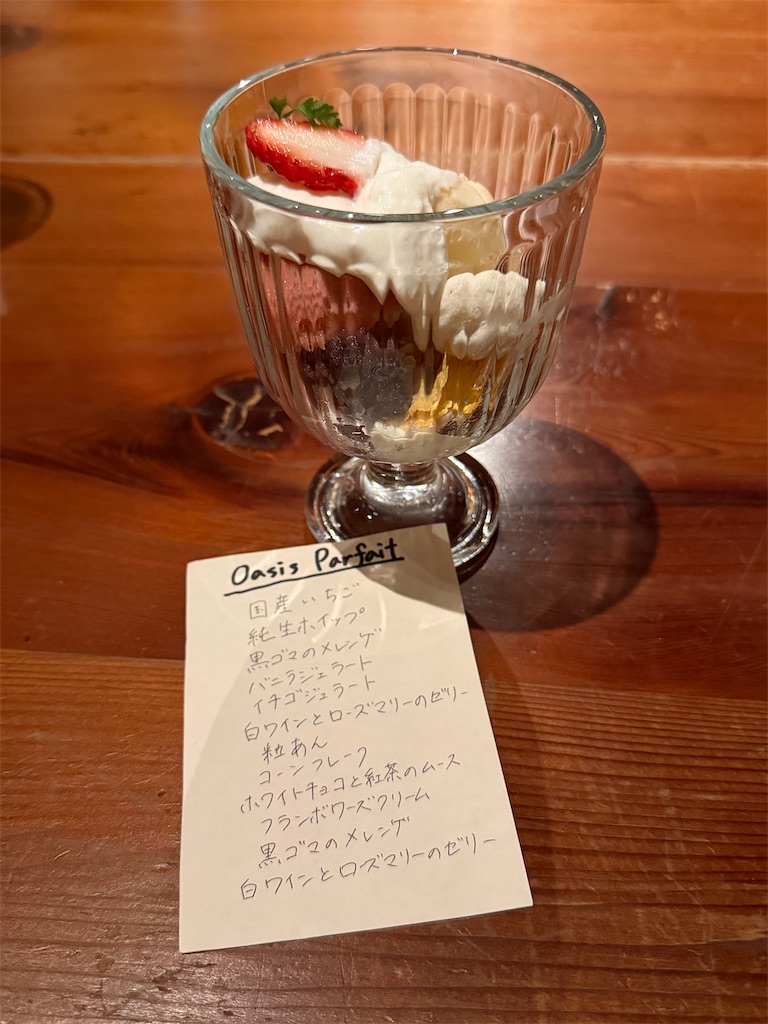 Oasis Parfait
国産いちご
純生ホイップ
黒ゴマのメレンゲ
バニラジェラート
イチゴジェラート
白ワインとローズマリーのゼリー
粒あん
コーンフレーク
ホワイトチョコと紅茶のムース
フランボワーズクリーム
黒ゴマのメレンゲ
白ワインとローズマリーのゼリー